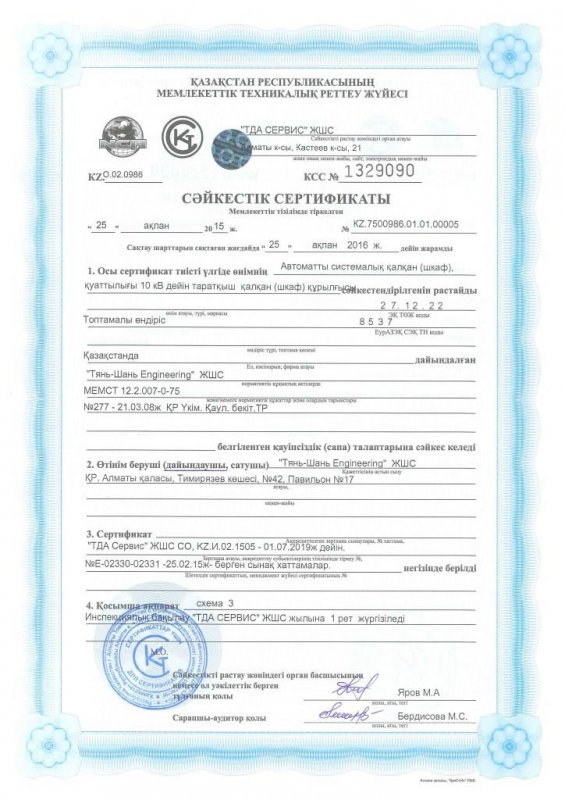 ҚАЗАҚСТАН РЕСПУБЛИКАСЫНЫҢ
МЕМЛЕКЕТТІК ТЕХНИКАЛЫҚ РЕТТЕУ ЖҮЙЕСІ
"ТДА СЕРВИС" ЖШС
Сәйкестікті растау жөніндегі орган атауы
маты к-сы, Кастеев к-сы, 21
KZ О.02.0986
КСС № 1329090
СӘЙКЕСТІК СЕРТИФИКАТЫ
Мемлекеттік тізілімде тіркелген
" 25 " ақпан 2015 ж. № KZ.7500986.01.01.00005
Сақтау шарттарын сақтаған жағдайда " 25 " ақпан 2016 ж. дейін жарамды
1. Осы сертификат тиісті үлгіде өнімнің Автоматты системалық қалқан (шкаф),
қуаттылығы 10 кВ дейін таратқыш қалқан (шкаф) құрылғысы сәйкестендірілгенін растайды
27.12.22
өнім атауы, түрі, маркасы ЭҚ ТӨЖ коды
Топтамалы өндіріс 8537
ЕурАЗЭҚ СЭҚ ТН коды
өндіріс түрі, топтама көлемі
Қазақстанда дайындалған
Ел, кәсіпорын, фирма атауы
"Тянь-Шань Engineering" ЖШС
МЕМСТ 12.2.007-0-75
№277 - 21.03.08ж ҚР Үкім. Қаул. бекіт.ТР
белгіленген қауіпсіздік (сапа) талаптарына сәйкес келеді
2. Өтінім беруші (дайындаушы, сатушы) "Тянь-Шань Engineering" ЖШС
ҚР, Алматы қаласы, Тимирязев көшесі, №42, Павильон №17
атауы,
мекен-жайы
3. Сертификат
"ТДА Сервис" ЖШС СО, KZ.И.02.1505 - 01.07.2019ж дейін.
№Е-02330-02331 -25.02.15ж- берген сынақ хаттамалар. негізінде берілді
Шетелдік сертификаттың, менеджмент жүйесі сертификатының №
4. Қосымша ақпарат схема 3
Инспекциялық бақылау "ТДА СЕРВИС" ЖШС жылына 1 рет жүргізіледі
М.О.
Сәйкестікті растау жөніндегі орган басшысының
немесе ол уәкілеттік берген
тұлғаның қолы Яров М.А
қолы, аты, тегі
Сарапшы-аудитор қолы Бердисова М.С.
қолы, аты, тегі